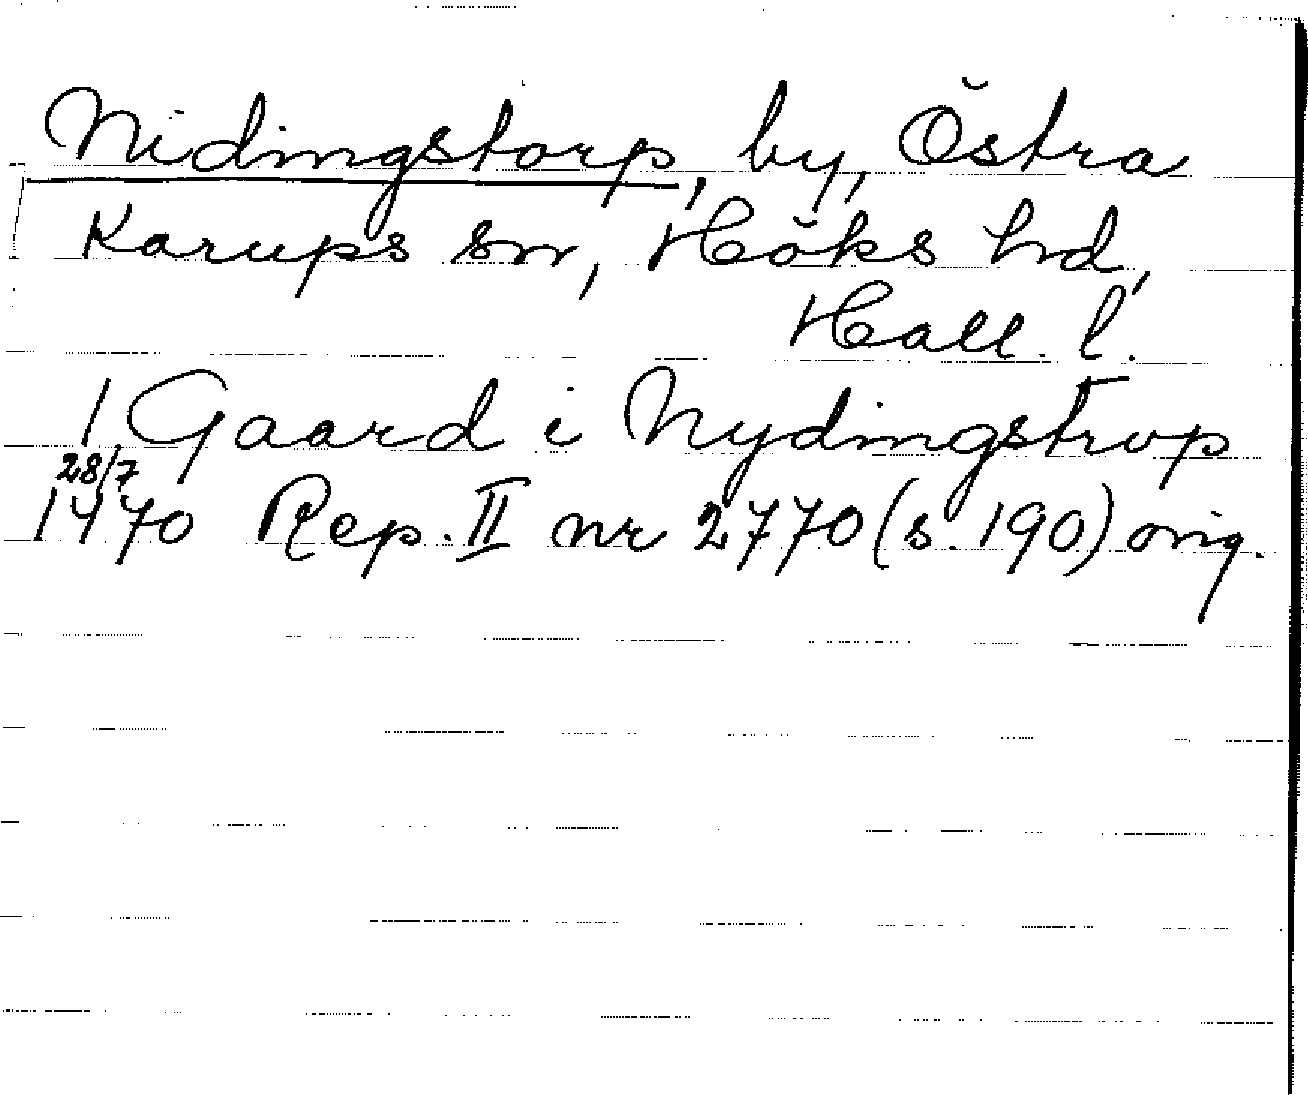 Nidingstorp, by, Östra
Karups sn, Höks hd,
Hall. l.
1 Gaard i Nydingstrup
28/7
1470 Rep. II nr 2770 (s. 190) orig.